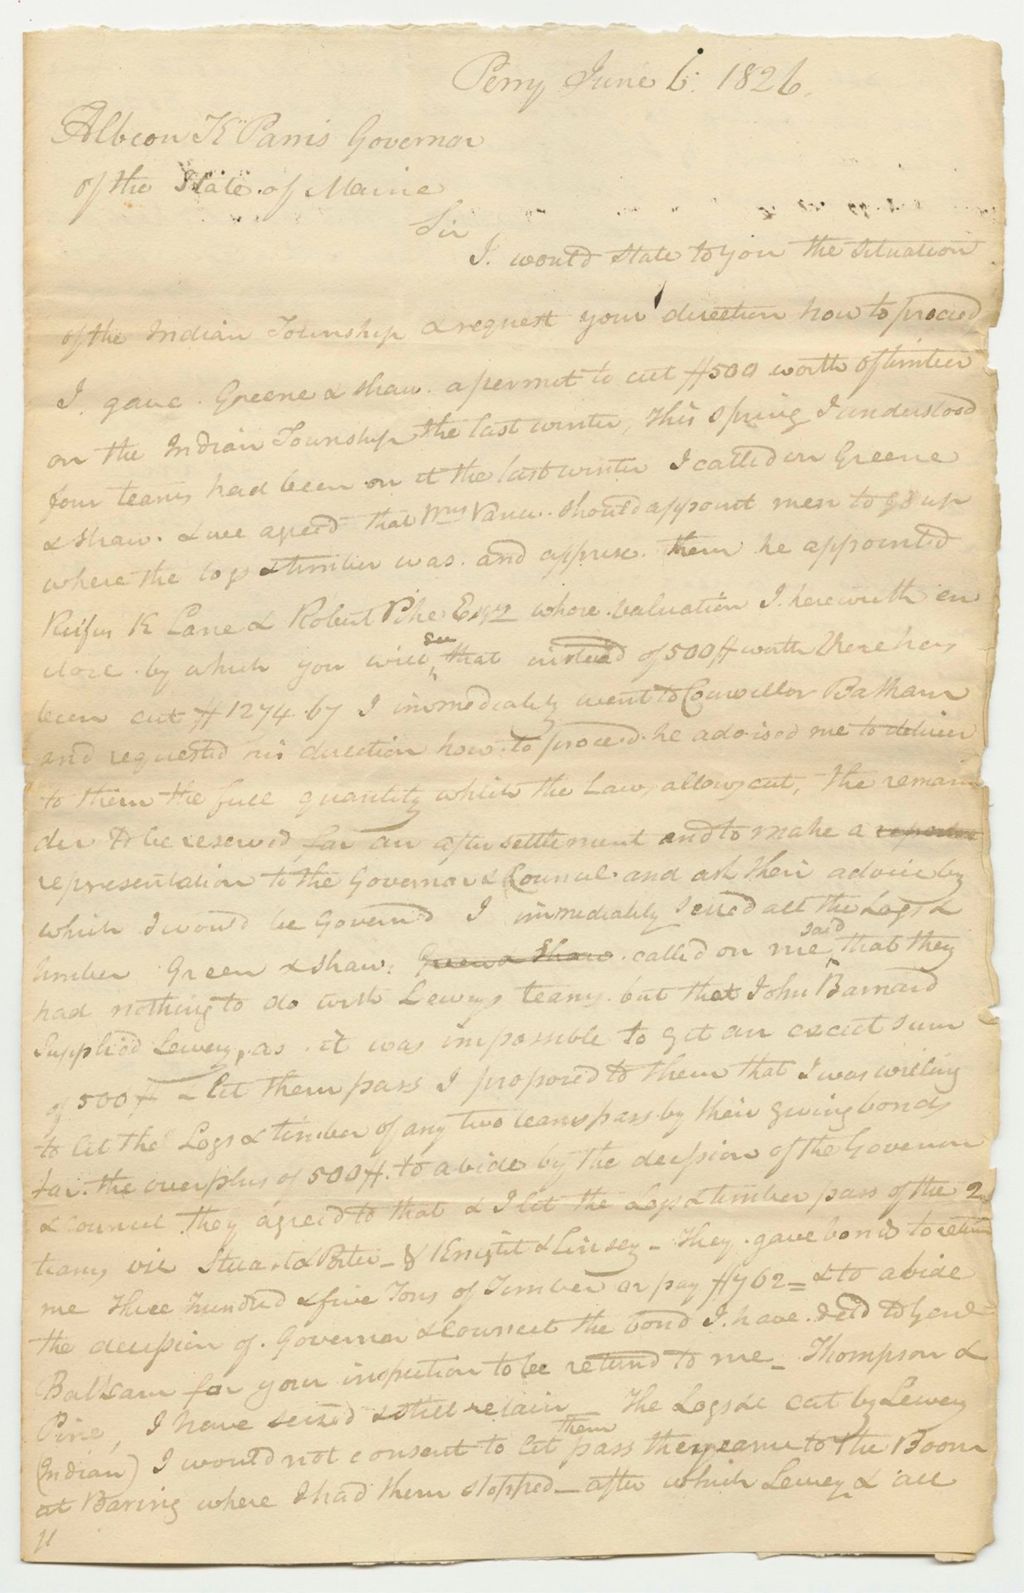 Perry June 6: 1826.
Albion K Parris Governor
of the State of Maine
Sir
I. would state to you the situation
of the Indian Township & request your direction how to proceed
I. gave. Greene & Shaw. a permit to cut $500 worth of timber
on the Indian Township the last winter, this spring I understood
four teams had been on it the last winter I called on Greene
& Shaw. & we agreed that Wm Vance. should appoint men to go up
where the logs & timber was. and apprise. them he appointed
Rufus K Lane & Robert Pike Esqr whose. valuation I. herewith en
close. by which you will see that instead of 500$ worth there has
been cut $1274.67 I immediately went to Councillor Balkam
and requested his direction how. to proceed. he advised me to deliver
to them the full quantity which the Law allows cut, the remain
der to be reserved, for an after settlement and to make a
representation to the Governor & Council. and ask their advice by
which I would be Governed I immediately seized all the Logs &
timber Green & Shaw. Green & Shaw. called on me said that they
had nothing to do with Leweys teams. but that John Barnard
Supplied Lewey, as. it was impossible to get an exact sum
of 500$ – let them pass I proposed to them that I was willing
to let the Logs & timber of any two teams pass by their giving bonds
for. the overplus of 500$. to abide by the decision of the Governor
& Council they agreed to that & I let the Logs & timber pass of the 2
teams viz Stuart & Porter – & Knight & Linsey – They. gave bond to return
me three hundred & five Tons of Timber or pay $762 = & to abide
the decision of. Governor & Council the bond I. have. deld to Genl
Balkam for your inspection to be returnd to me – Thompson &
Pine, I have seized & still retain – The Logs &c cut by Lewey
(Indian) I would not consent to let them pass they came to the Boom
at Baring where I had them stopped – after which Lewey & all